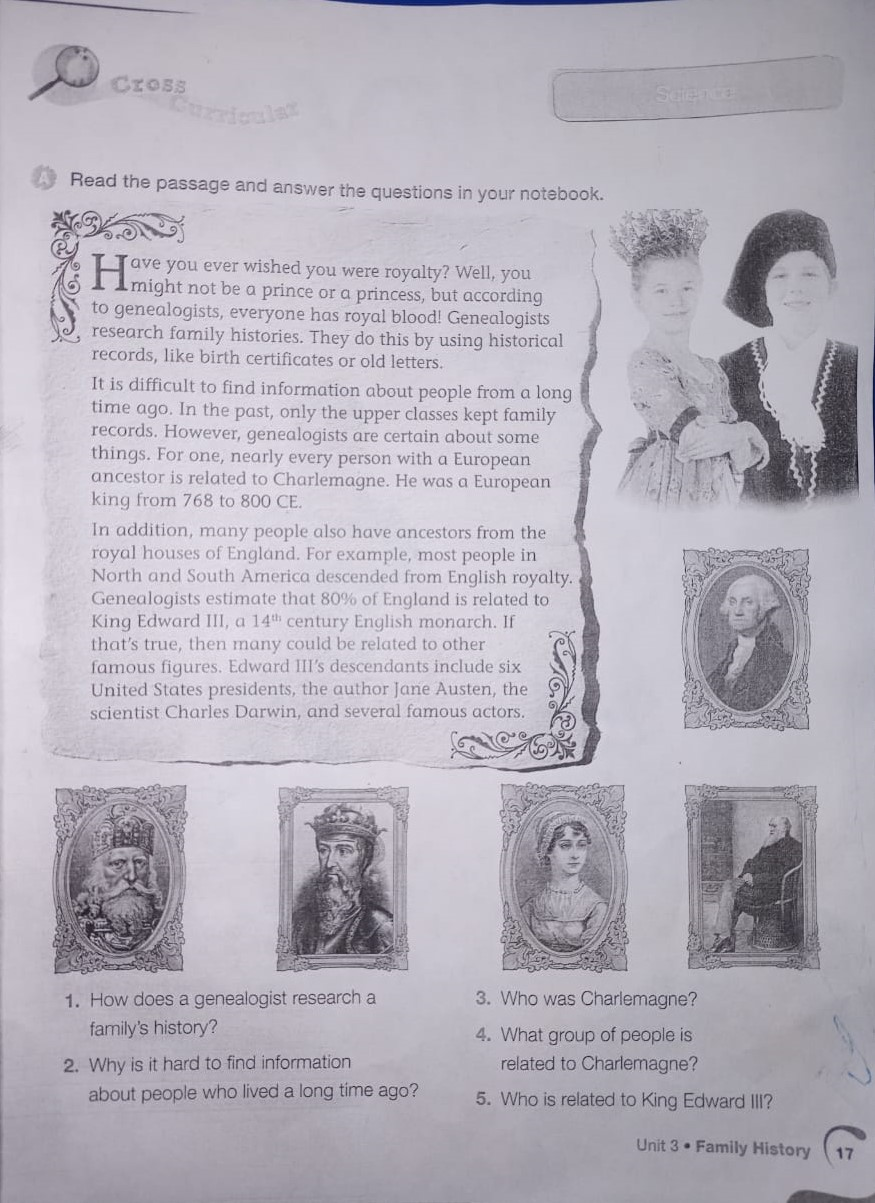 Cross
Curricular
Science
A Read the passage and answer the questions in your notebook.
Have you ever wished you were royalty? Well, you
might not be a prince or a princess, but according
to genealogists, everyone has royal blood! Genealogists
research family histories. They do this by using historical
records, like birth certificates or old letters.
It is difficult to find information about people from a long
time ago. In the past, only the upper classes kept family
records. However, genealogists are certain about some
things. For one, nearly every person with a European
ancestor is related to Charlemagne. He was a European
king from 768 to 800 CE.
In addition, many people also have ancestors from the
royal houses of England. For example, most people in
North and South America descended from English royalty.
Genealogists estimate that 80% of England is related to
King Edward III, a 14th century English monarch. If
that's true, then many could be related to other
famous figures. Edward III's descendants include six
United States presidents, the author Jane Austen, the
scientist Charles Darwin, and several famous actors.
1. How does a genealogist research a
family's history?
2. Why is it hard to find information
about people who lived a long time ago?
3. Who was Charlemagne?
4. What group of people is
related to Charlemagne?
5. Who is related to King Edward III?
Unit 3 • Family History 17